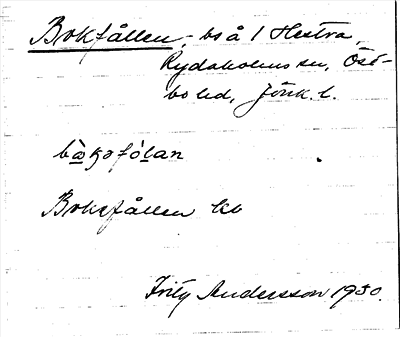 Bokfållen, bs å 1 Hestra,
Rydaholms sn, Öst-
bo hd, Jönk. l.
bòkofólan
Bokefållen kb
Fritz Andersson 1930.